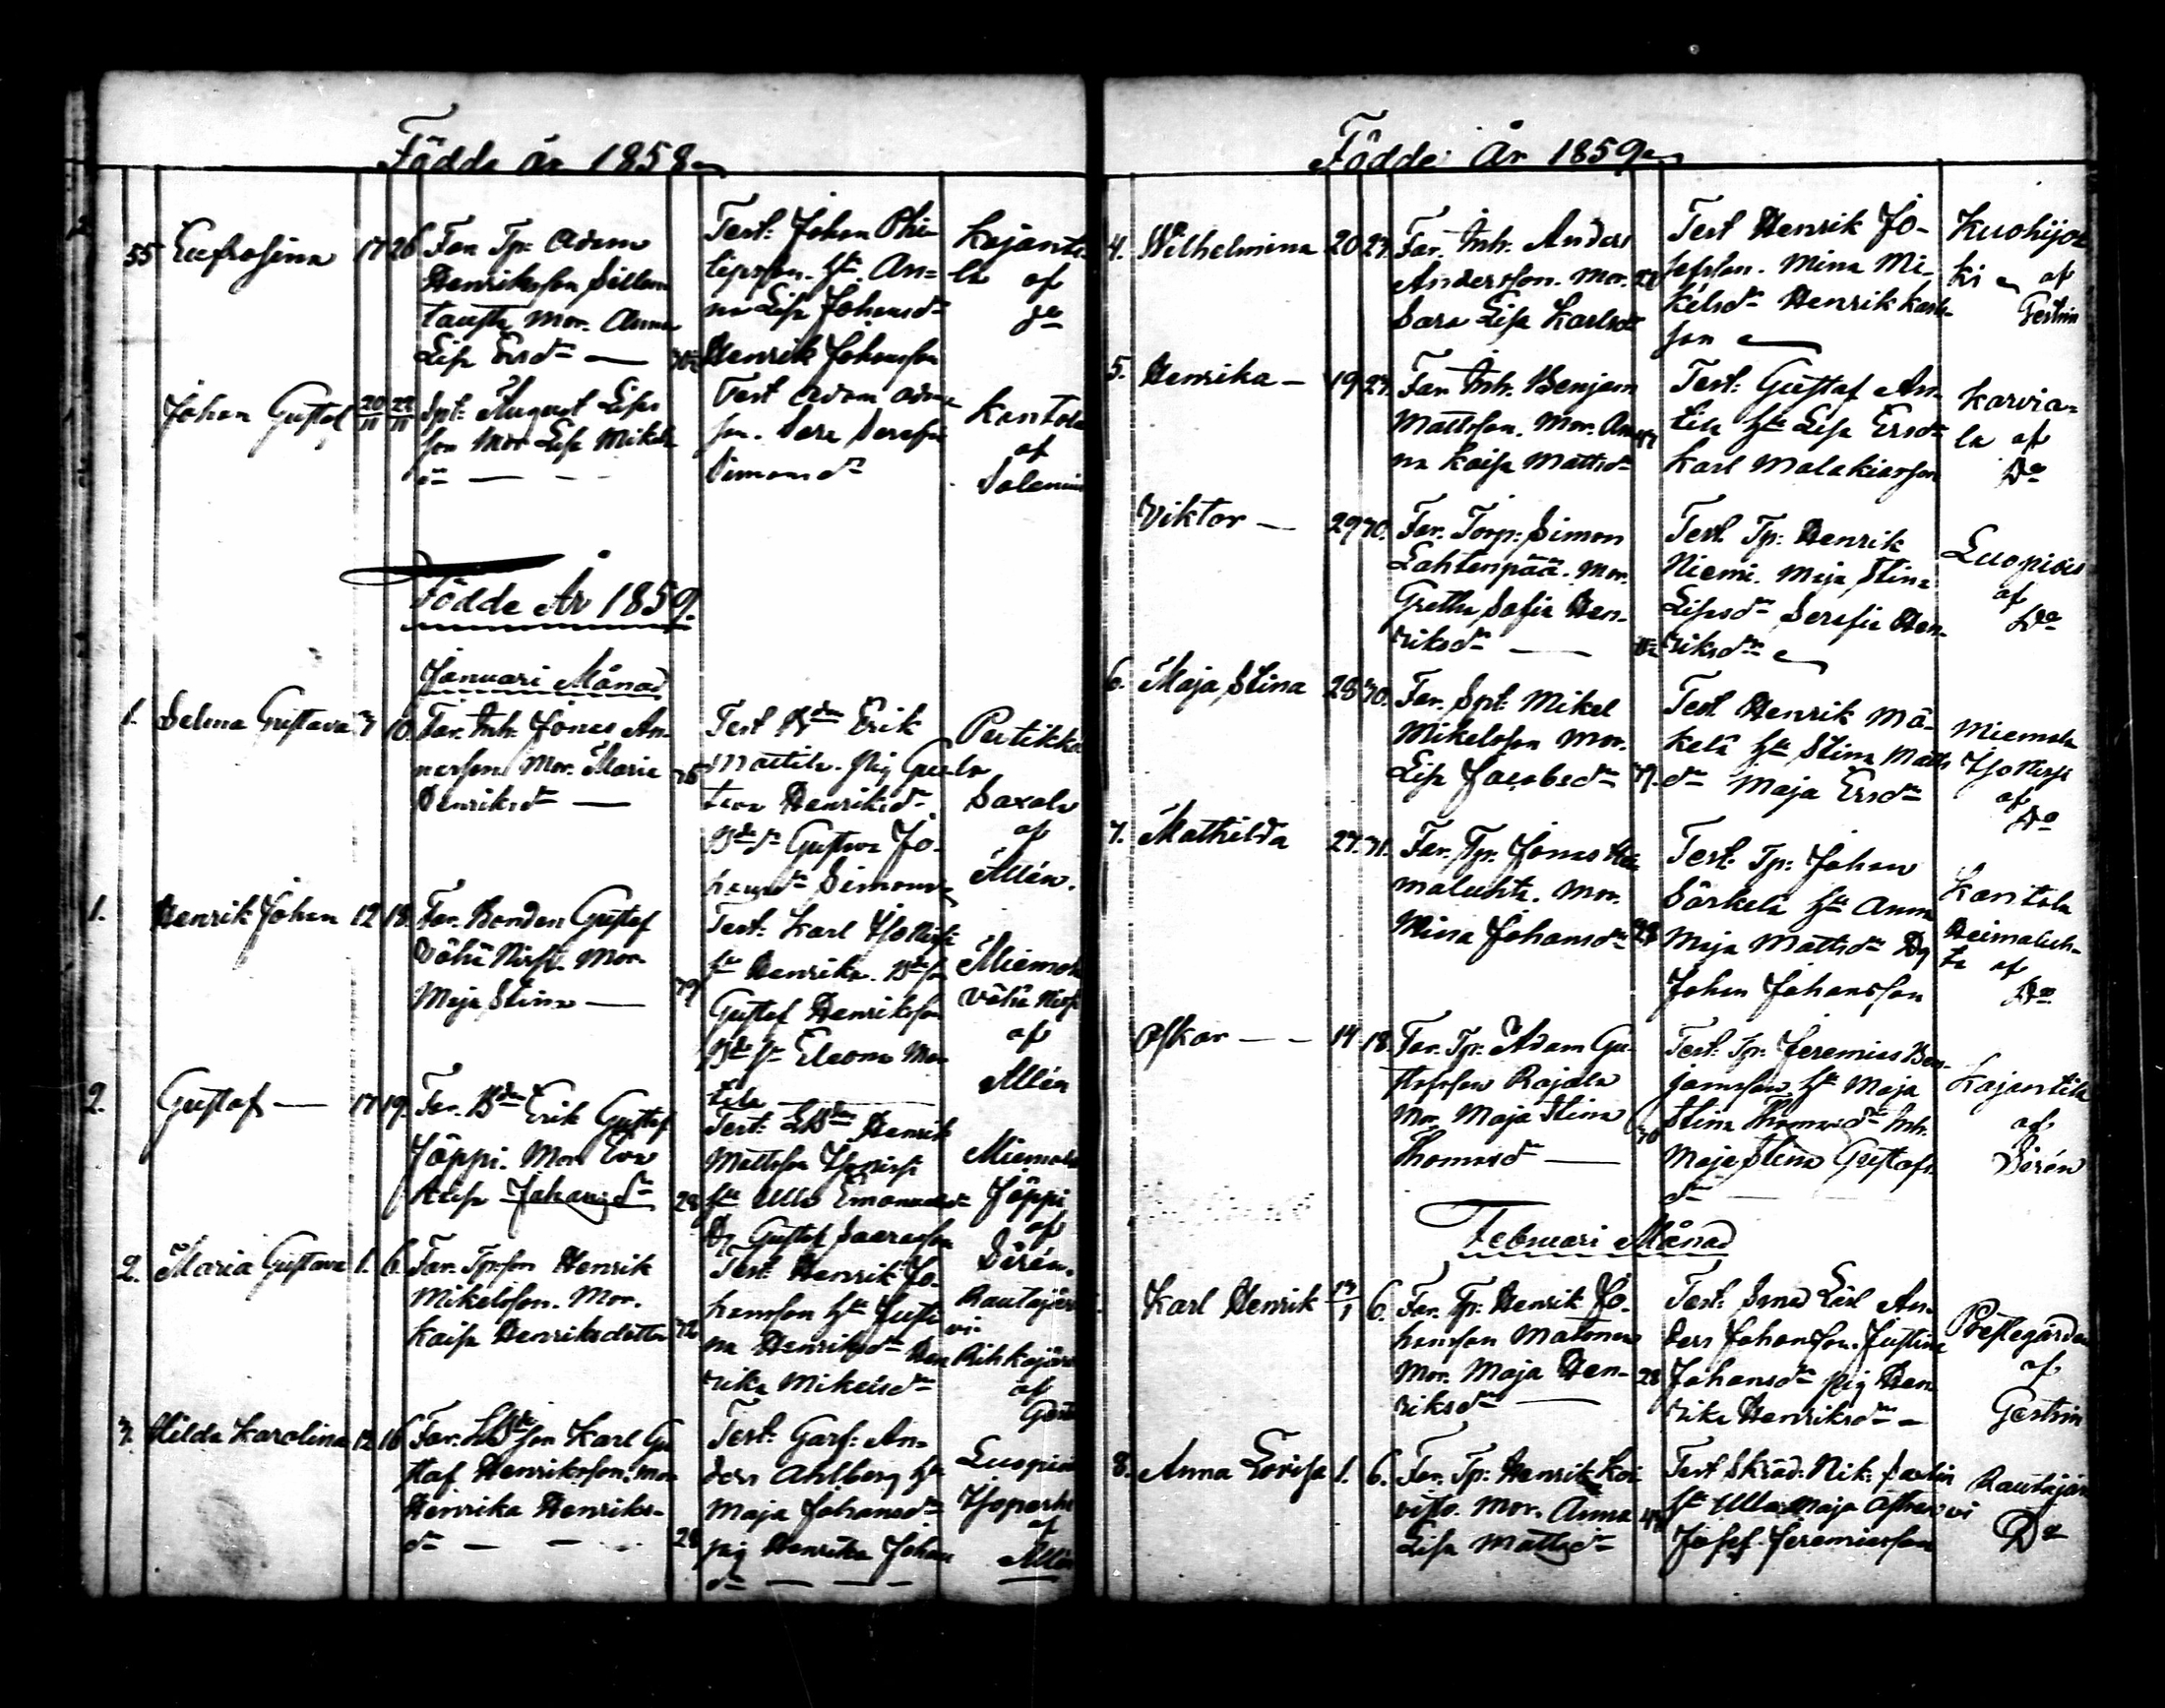 Födde år 1858
55 Eufrosina 17 26 Far Tp: Adam
Henriksson Sillan
tausta Mor. Anna
Lisa Ersdr
Test: Johan Phi-
lipsson. hu. An-
na Lisa Johansdr
Henrik Johansson
Kajanti-
la af
do
Johan Gustaf 20/11 22/11 Spt: August Lisas
son Mor Lisa Mikels
dr
Test Adam Adams
son. Sara Serafia
Simonsdr
Kantola
af
Salenius
Födde År 1859.
Januari Månad
1. Selma Gustava 7 10. Far. Inh. Jonas An-
Mor. Maria
Henriksdr 36
Test Bdn Erik
Mattila. Pig Gus
tava Henriksdr
Bdedr Gustava Jo-
hansdr Simons
Pertikka
la
Saxala
af
Allén.
1. Henrik Johan 12 18. Far. Bonden Gustaf
Vähä Nirfi. Mor.
Maja Stina 39
Test: Karl
hu Henrika. Bdeson
Gustaf Henriksson
Bde hu Eleona Mat
tila
Miemola
Vähä Nirfi
af
Allén
2. Gustaf 17 19. Far. Bdn Erik Gustaf
Jöppi. Mor Eva
Kaisa Johansdr 28
Test: LBdn Henrik
Mattsson
hu Ulla Emanuelsdr
Dg Gustaf
Miemola
Jöppi
af
Sirén.
2. Maria Gustava 1. 6. Far. Tpson Henrik
Mikelsson. Mor.
Kaisa Henriksdotter 32
Test: Henrik Jo-
hansson hu Justi
na Henriksdr Hen
rika Mikelsdr
Rautajär
vi
af
3. Hilda Karolina 12 16 Far. LBdeson Karl Gu
staf Henriksson. Mor
Henrika Henriks-
dr 28
Test: Garf: An-
ders Ahlberg hu
Maja Johansdr
pig Henrika Johans
dr
Luopiois
af
Allén
Födde År 1859
4. Wilhelmina 20 23. Far. Inh. Anders
Andersson. Mor.
Sara Lisa Karlsdr
Test Henrik Jo-
sefsson. Mina Mi-
kelsdr Henrik Karls-
son
Kuohijo
ki af
Gestrin
5. Henrika 19 23. Far Inh. Benjam
Mattsson. Mor. An
na Kaisa Mattsdr
Test: Gustaf An-
tila hu Lisa Ersdr
Karl Malakiasson
Karvia-
la af
Do
Viktor 29 30. Far. Torp: Simon
Lahtenpää. Mor.
Greta Sofia Hen-
riksdr
Test Tp: Henrik
Niemi. Maja Stina
Lisasdr Serafia Hen-
riksdr
Luopiois
af
Do
6. Maja Stina 28 30. Far. Spt: Mikel
Mikelsson Mor.
Lisa Jacobsdr 39.
Test Henrik Mä-
kelä hu Stina Matts
dr Maja Ersdr
Miemola
af
Do
7. Mathilda 27. 31. Far. Tp. Jonas Hei
maluhta. Mor.
Mina Johansdr 28
Test: Tp: Johan
Särkelä hu Anna
Maja Mattsdr Dg
Johan Johansson
Kantola
Heimaluh-
ta af
Do
Oskar 14 18 Far. Tp. Adam Gu-
stafsson Rajala
Mor. Maja Stina
Thomasdr 30
Test: Tp. Jeremias Ben-
jamsson hu Maja
Stina Thomasdr Inh.
Maja Stina Gustafs
dr
Kajantila
af
Sirén
Februari Månad
Karl Henrik 6. Far. Tp: Henrik Jo-
hansson Matonen
Mor. Maja Hen-
riksdr 28
Test: Smed Lärl An-
ders Johansson. Justina
Johansdr pig Hen
rika Henriksdr
Prestegården
af
Gestrin
8. Anna Lovisa 1. 6. Far. Tp: Henrik Koi
visto. Mor. Anna
Lisa Mattsdr
Test Skräd. Nik:
hu Ulla Maja
Josef Jeremiasson
Rautajär
vi
Do